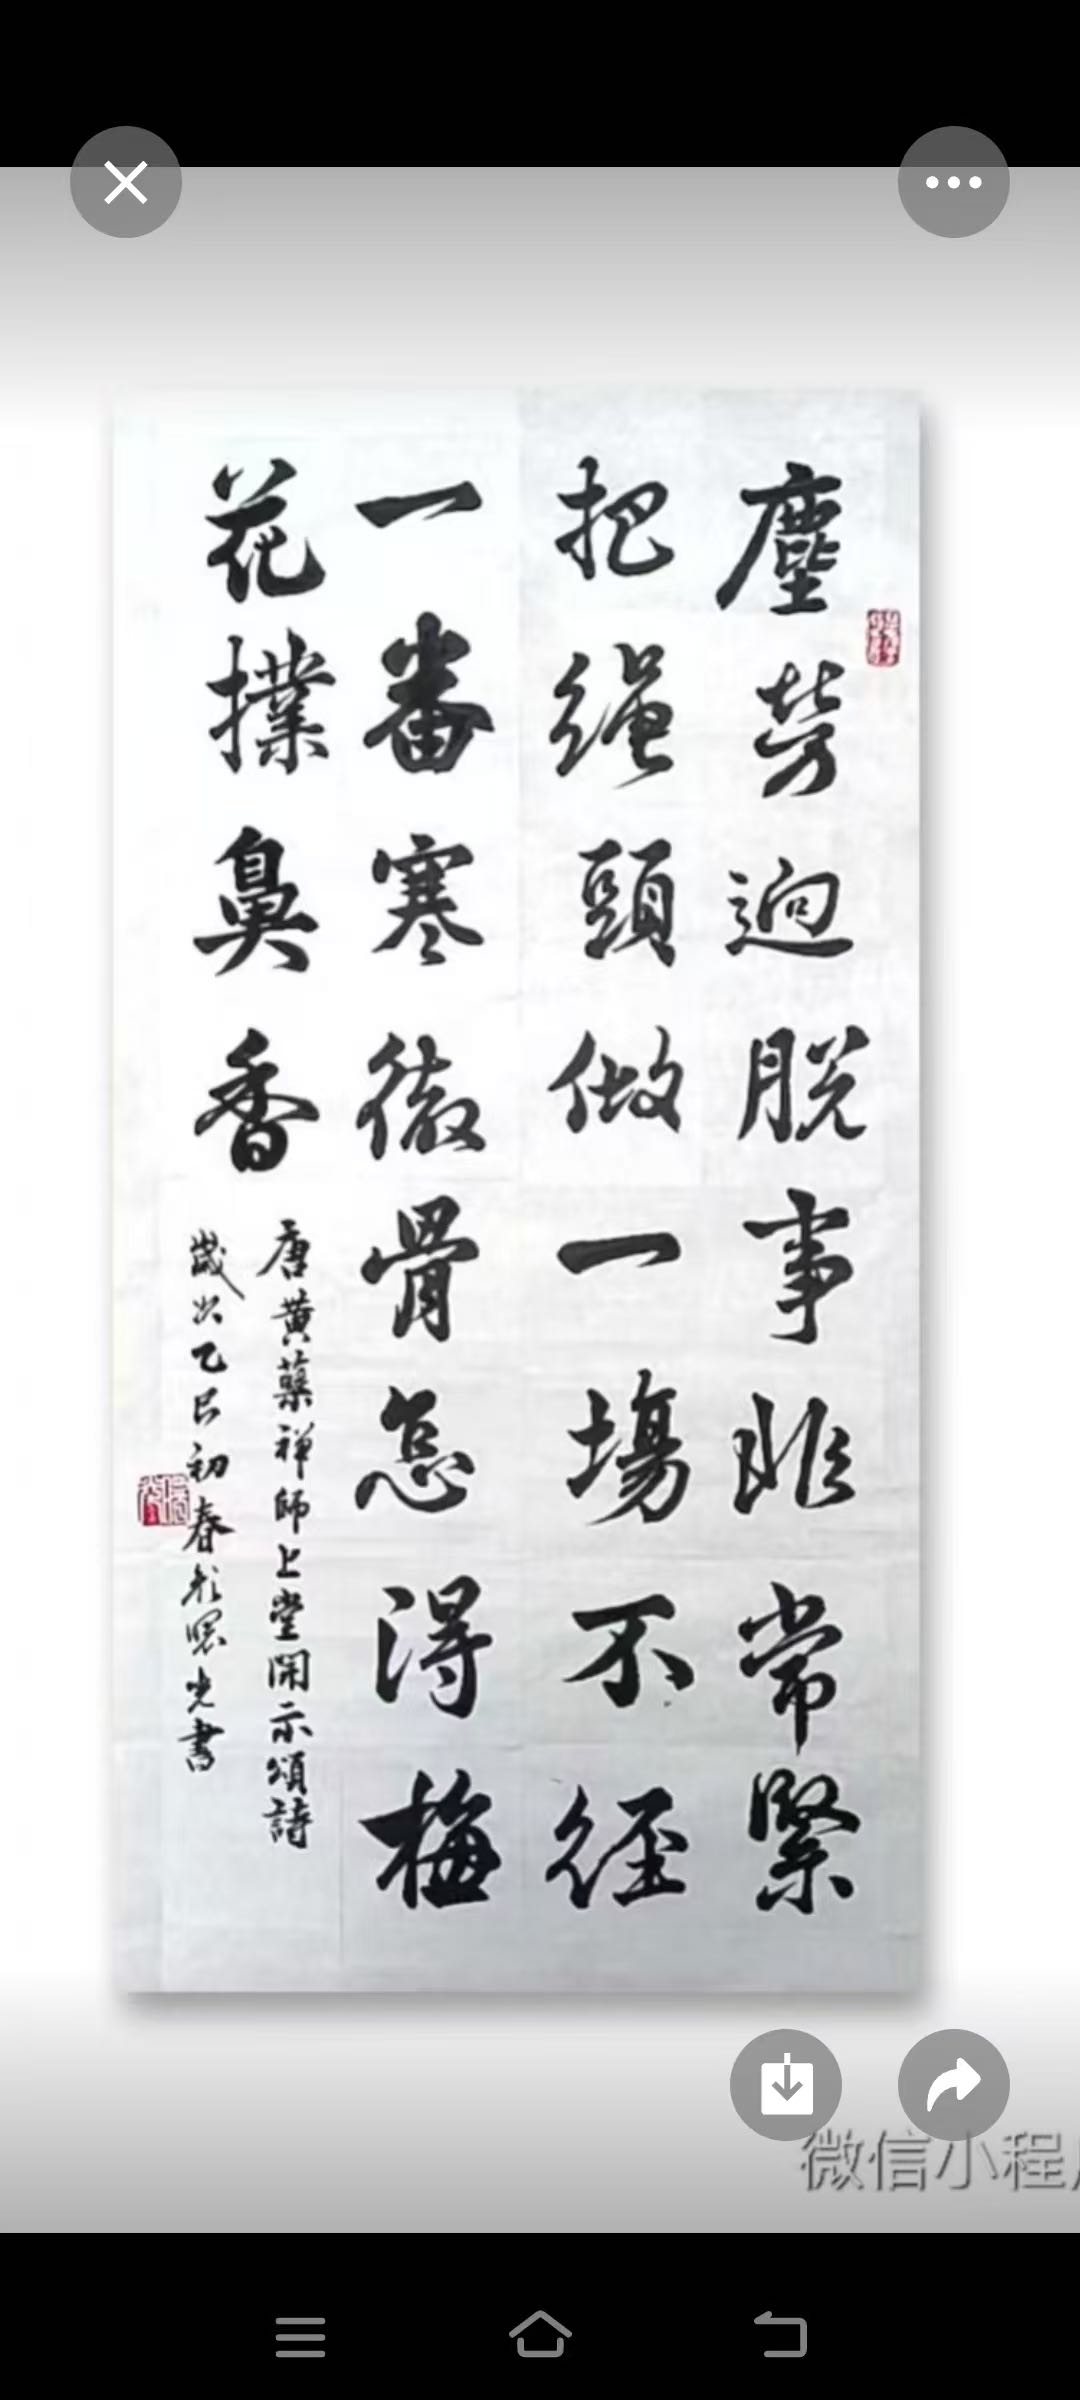 塵勞迥脱事非常緊
把繩頭做一場不徑
一番寒徹骨怎得梅
花撲鼻香
唐黄蘗禅師上堂開示頌詩
歲次乙巳初春
光書
微信小程